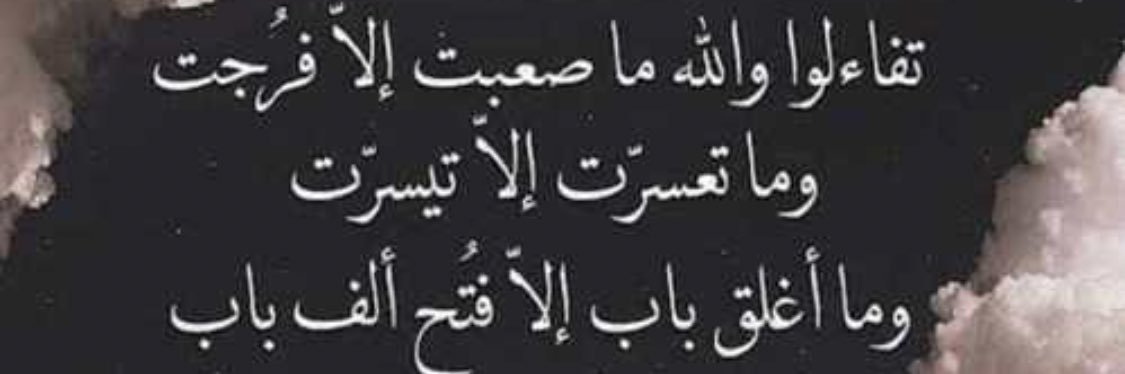 تفاءلوا والله ما صعبت إلاّ فُرجت
وما تعسرّت إلاّ تيسرّت
وما أغلق باب إلاّ فتُح ألف باب